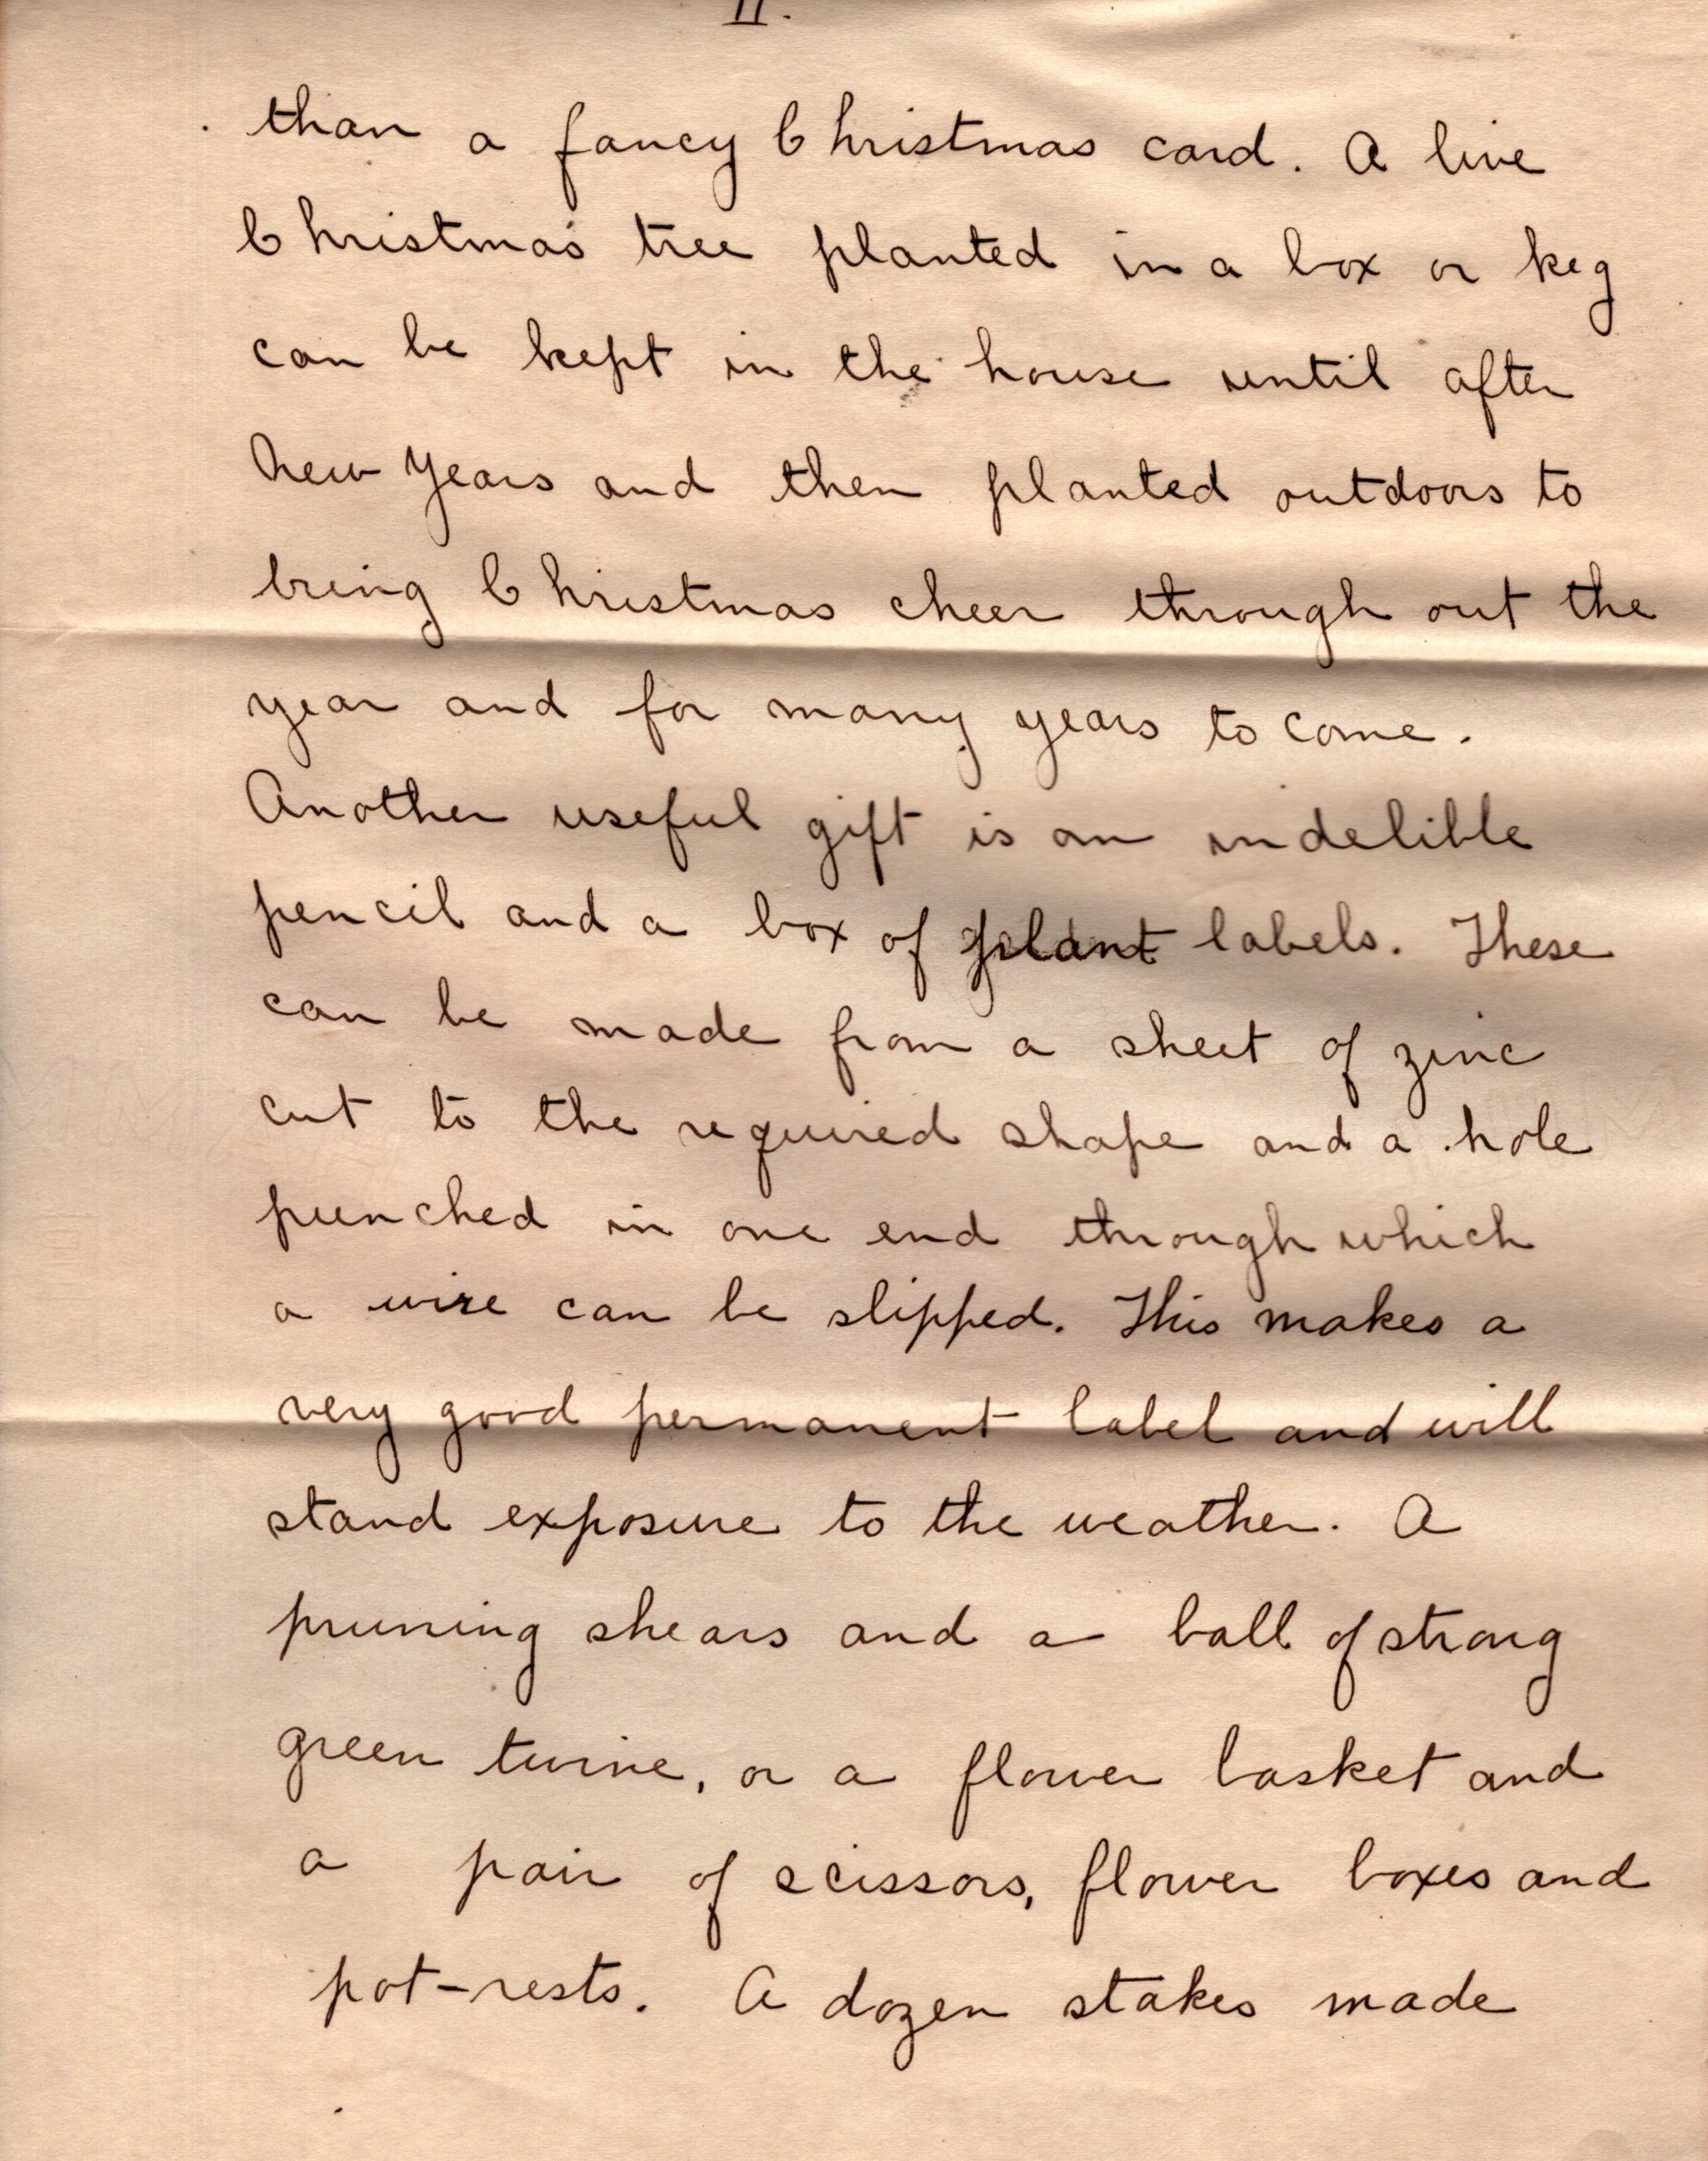 II.
than a fancy Christmas card. A live
Christmas tree planted in a box or keg
can be kept in the house until after
New Years and then planted outdoors to
bring Christmas cheer through out the
year and for many years to come.
Another useful gift is an indelible
pencil and a box of plant labels. These
can be made from a sheet of zinc
cut to the required shape and a hole
punched in one end through which
a wire can be slipped. This makes a
very good permanent label and will
stand exposure to the weather. A
pruning shears and a ball of strong
green twine, or a flower basket and
a pair of scissors, flower boxes and
pot-rests. A dozen stakes made